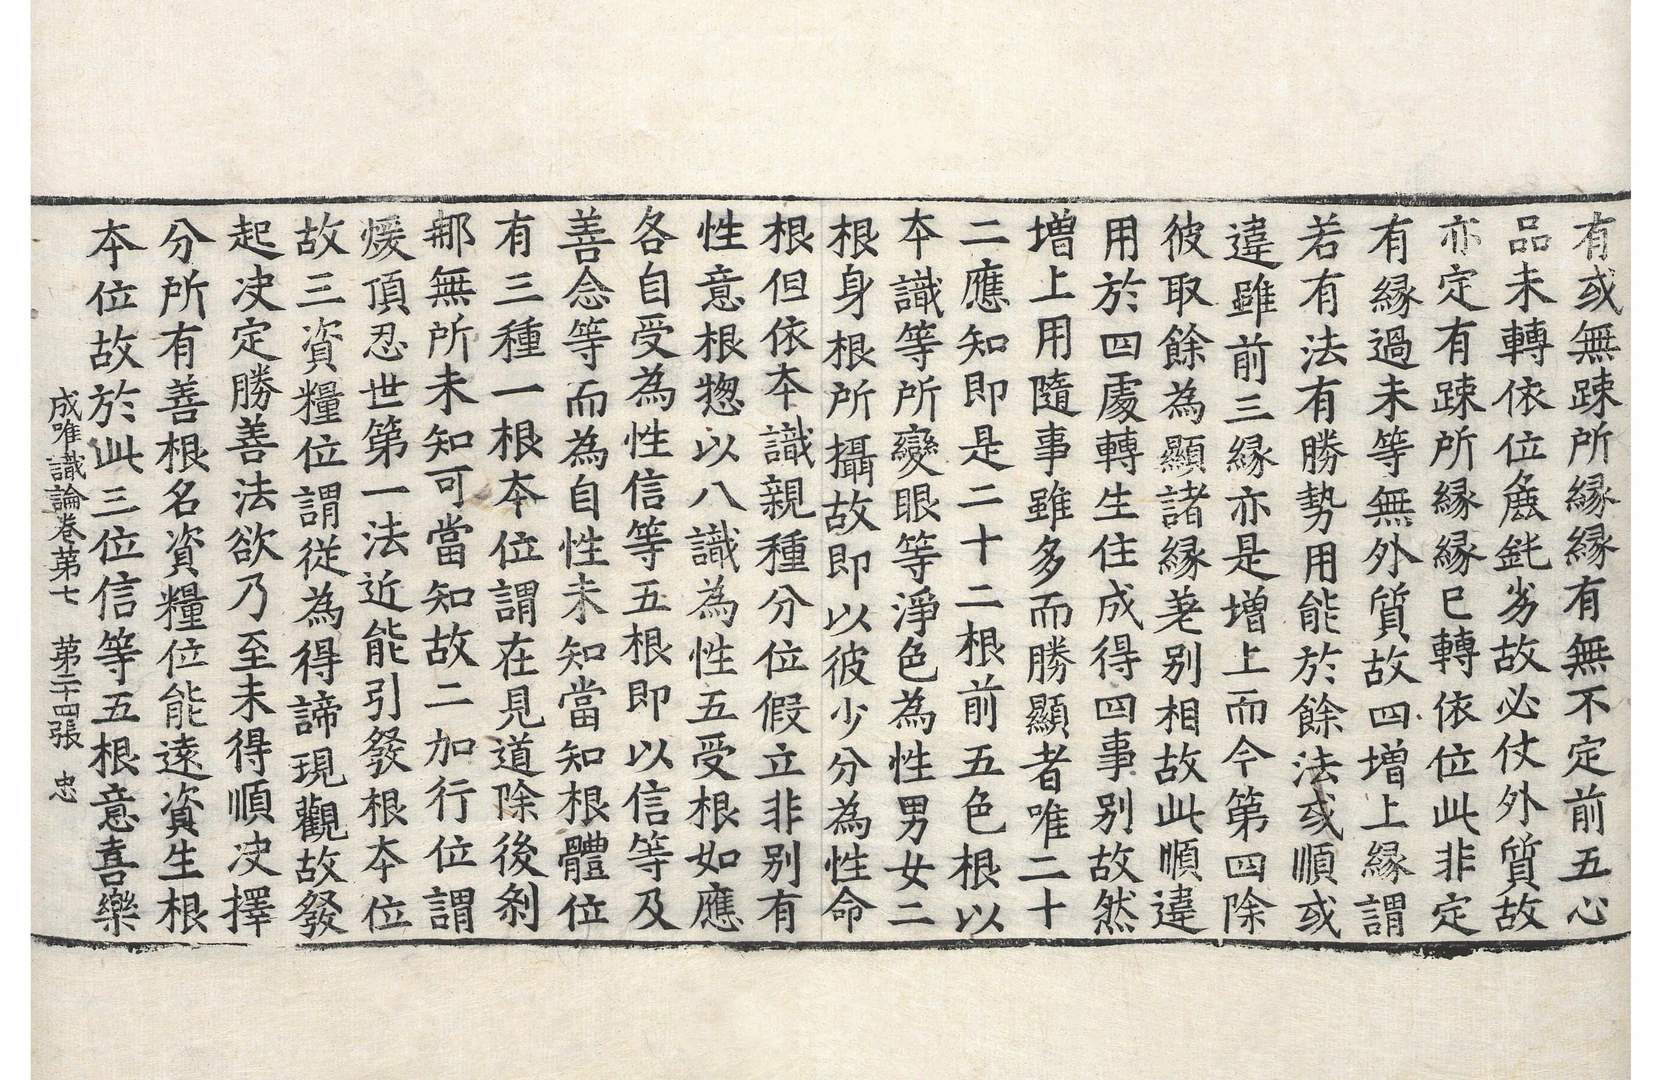 有或無踈所縁縁有無不定前五心
品未轉依位麁鈍劣故必仗外質故
亦定有踈所縁縁已轉依位此非定
有縁過未等無外質故四增上縁謂
若有法有勝勢用能於餘法或順或
違雖前三縁亦是增上而今第四除
彼取餘為顯諸縁差别相故此順違
用於四處轉生住成得四事别故然
增上用隨事雖多而勝顯者唯二十
二應知即是二十二根前五色根以
本識等所變眼等淨色為性男女二
根身根所攝故即以彼少分為性命
根但依本識親種分位假立非别有
性意根揔以八識為性五受根如應
各自受為性信等五根即以信等及
善念等而為自性未知當知根體位
有三種一根本位謂在見道除後剎
那無所未知可當知故二加行位謂
煖頂忍世第一法近能引發根本位
故三資糧位謂從為得諦現觀故發
起決定勝善法欲乃至未得順決擇
分所有善根名資糧位能遠資生根
本位故於此三位信等五根意喜樂
成唯識論卷第七 第二十四張 忠